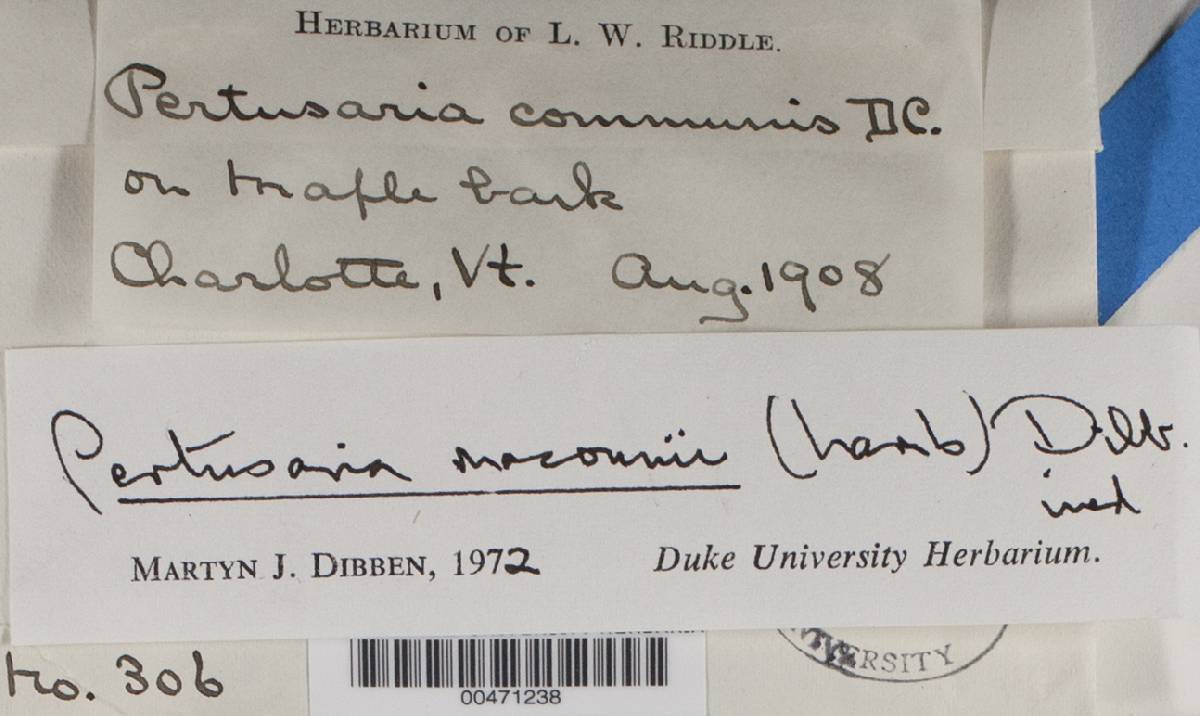 HERBARIUM OF L. W. RIDDLE.
Pertusaria communis DC.
on maple bark
Charlotte, Vt. Aug. 1908
Pertusaria macounii (Lamb) Dibb.
ined
MARTYN J. DIBBEN, 1972 Duke University Herbarium.
No. 306
00471238
VERSITY